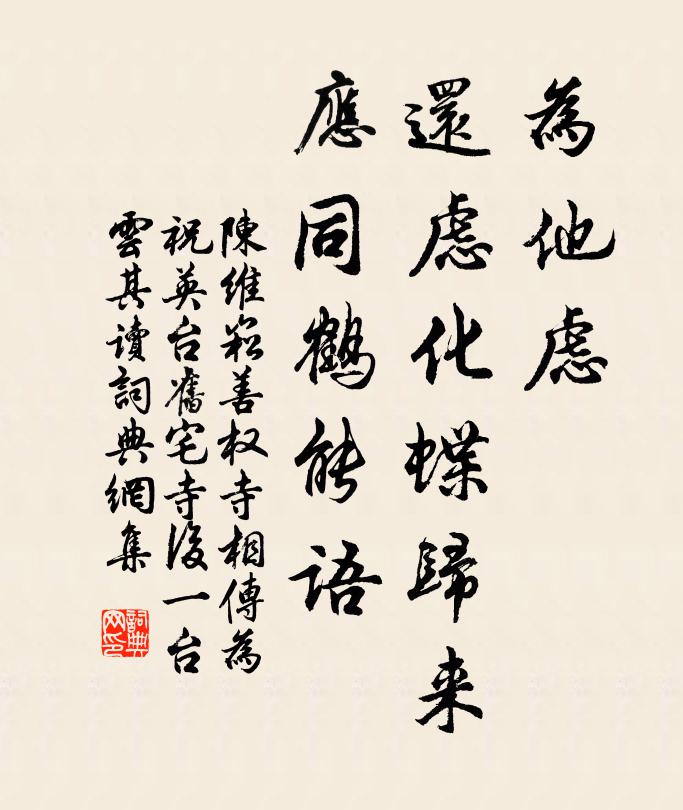 為他慮
還慮化蝶歸来
應同鶴能語
陳維崧善权寺相傳為
祝英台舊宅寺後一台
雲其讀詞典網集
詞典
网印